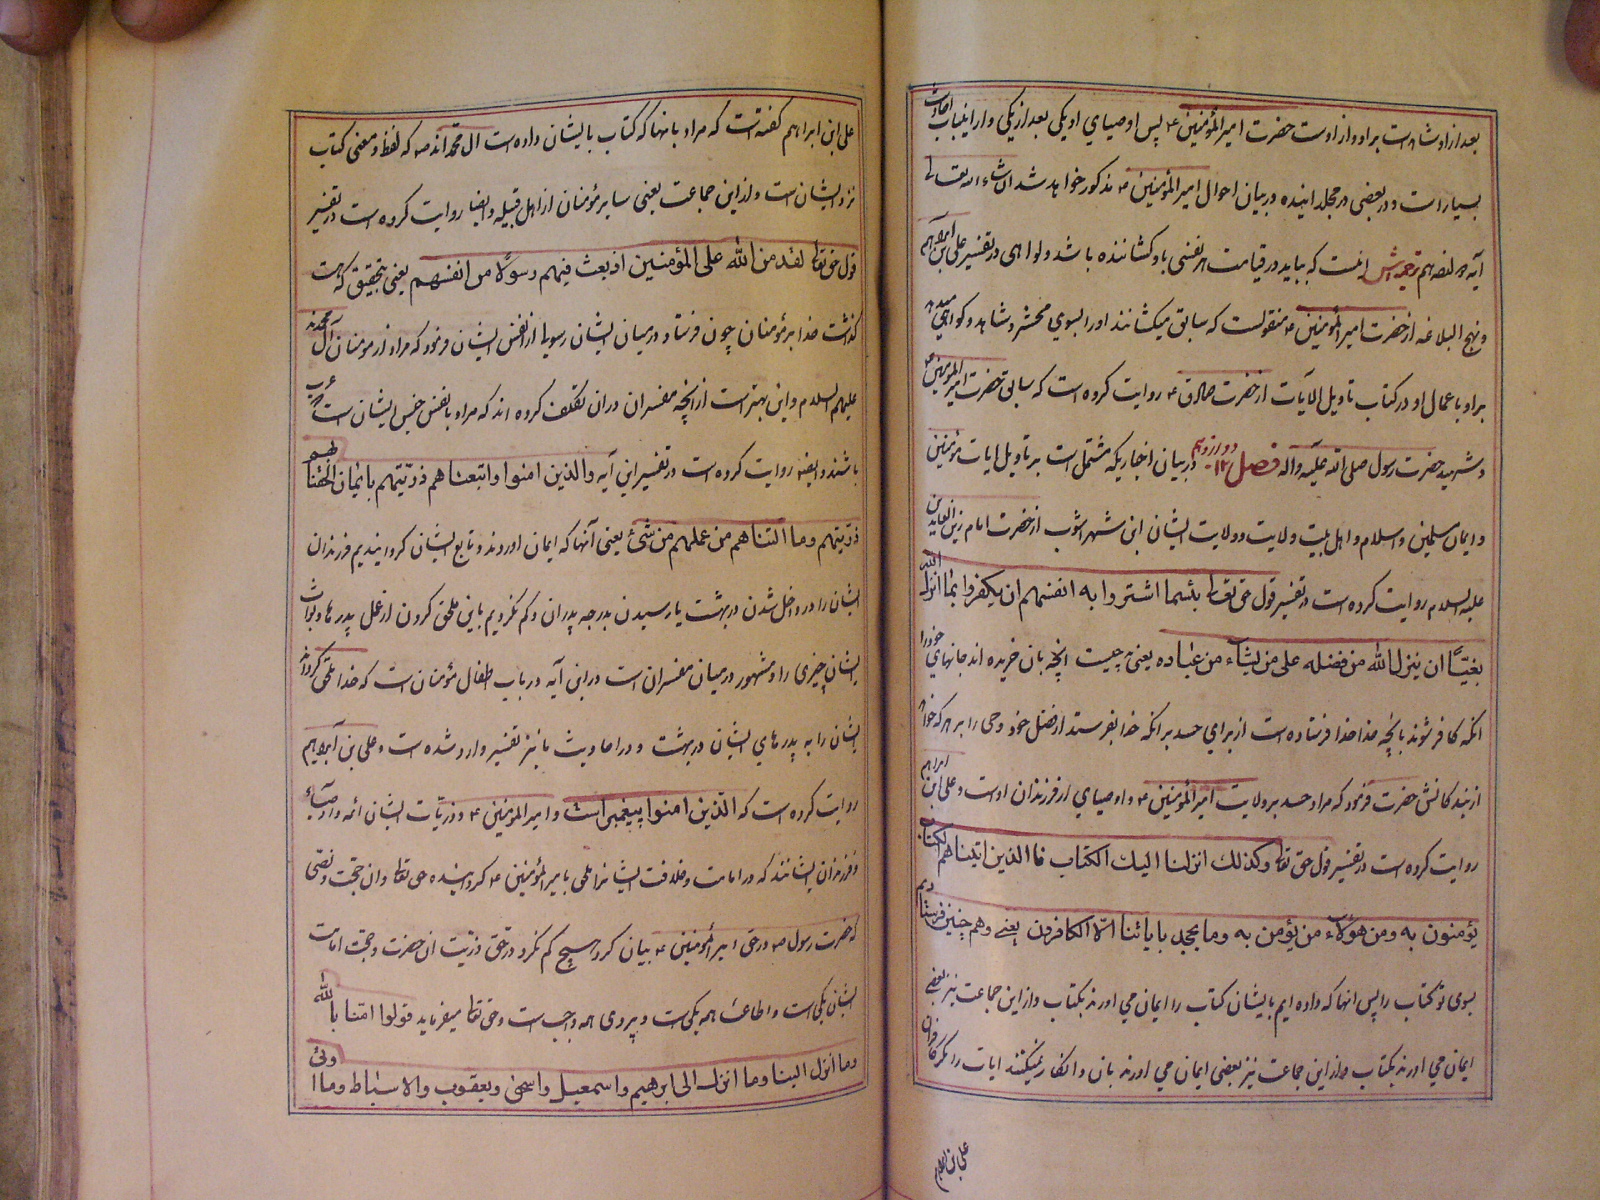 بعد از او شاهد است بر او و از اوست حضرت امیر المؤمنین ع پس اوصیای او یکی بعد از یکی و از اینباب احادیث
بسیار است و در بعضی در مجلد اینده در بیان احوال امیر المؤمنین ع مذکور خواهد شد ان شاء الله تعالی
ترجمه اش اینست که بیاید در قیامت هر نفسی با او کشاننده باشد و گواهی در تفسیر علی بن ابراهیم
و نهج البلاغه از حضرت امیر المؤمنین ع منقولست که سایق میکشانند او را بسوی محشر و شاهد گواهی میدهد
بر او باعمال او در کتاب تاویل الآیات از حضرت صادق ع روایت کرده است که سایق حضرت امیر المؤمنین ع
و شهید حضرت رسول صلی الله علیه وآله فصل ۱۲ دوازدهم در بیان اخباریکه مشتمل است بر تاویل ایات مؤمنین
و ایمان و مسلمین و اسلام و اهل بیت و ولایت و ولایت ایشان ابن شهر اشوب از حضرت امام زین العابدین
علیه السلام روایت کرده است در تفسیر قول حق تعالی بئسما اشتروا به انفسهم ان یکفروا بما انزل الله
بغیًا ان ینزل الله من فضله علی من یشآء من عباده یعنی بد چیزیست انچه بان خریده اند جانهای خود را
انکه کافر شوند بانچه خدا فرستاده است از برای حسد بر انکه خدا بفرستد از فضل خود وحی را بر هر که خواهد
از بندکانش حضرت فرمود که مراد حسد بر ولایت امیر المؤمنین ع و اوصیای از فرزندان اوست و علی ابن ابراهیم
روایت کرده است در تفسیر قول حق تعالی وکذلک انزلنا الیک الکتاب فالذین اتیناهم الکتاب
یؤمنون به ومن هؤلاء من یؤمن به وما یجحد بایاتنا الّا الکافرون یعنی و هم چنین فرستادیم
بسوی تو کتاب را پس انها که داده ایم بایشان کتاب را ایمان می اورند بکتاب و از این جماعت نیز بعضی
ایمان می اورند بکتاب و از این جماعت نیز بعضی ایمان می اورند بان و انکار نمیکنند ایات را مگر کافران
علی بن ابراهیم
علی ابن ابراهیم کفته است که مراد بانها که کتاب بایشان داده است ال محمد اند ص که لفظ و معنی کتاب
نزد ایشان است و از این جماعت یعنی سایر مؤمنان از اهل قبیله و ایضا روایت کرده است در تفسیر
قول حق تعالی لقد من الله علی المؤمنین اذ بعث فیهم رسولًا من انفسهم یعنی بتحقیق که منت
کذاشت خدا بر مؤمنان چون فرستاد در میان ایشان رسولی از نفس ایشان فرمود که مراد از مؤمنان آل محمدند
علیهم السلام و این بهتر است از انچه مفسران در ان تکلف کرده اند که مراد بانفس جنس ایشان است که عرب
باشند و ایضا روایت کرده است در تفسیر این آیه والذین امنوا واتبعناهم ذریّتهم بایمان الحقنا بهم
ذریتهم وما التناهم من عملهم من شیء یعنی آنها که ایمان اوردند و تابع ایشان کردانیدیم فرزندان
ایشان را در داخل شدن در بهشت یا رسیدن بدرجه پدران و کم نکردیم باین ملحق کردن از عمل پدرها و ثواب
ایشان چیزی را و مشهور در میان مفسران است در این آیه در باب اطفال مؤمنان است که خدا ملحق کرداند
ایشان را به پدرهای ایشان در بهشت و در احادیث ما نیز تفسیر وارد شده است و علی بن ابراهیم
روایت کرده است که الّذین امنوا پیغمبر است و امیر المؤمنین ع و ذریّات ایشان ائمه و اوصیاء
و فرزندان ایشانند که در امامت و خلافت ایشانرا ملحق بامیر المؤمنین ع کردانیده حق تعالی و ان حجت و نصّی
که حضرت رسول ص در حق امیر المؤمنین ع بیان کرد هیچ کم نکرد در حق ذریت ان حضرت و حجت امامت
ایشان یکی است و اطاعت همه یکی است و پیروی همه واجب است و حق تعالی میفرماید قولوا امنا بالله
وما انزل الینا وما انزل الی ابرهیم واسمعیل واسحق ویعقوب والاسباط وما اوتی